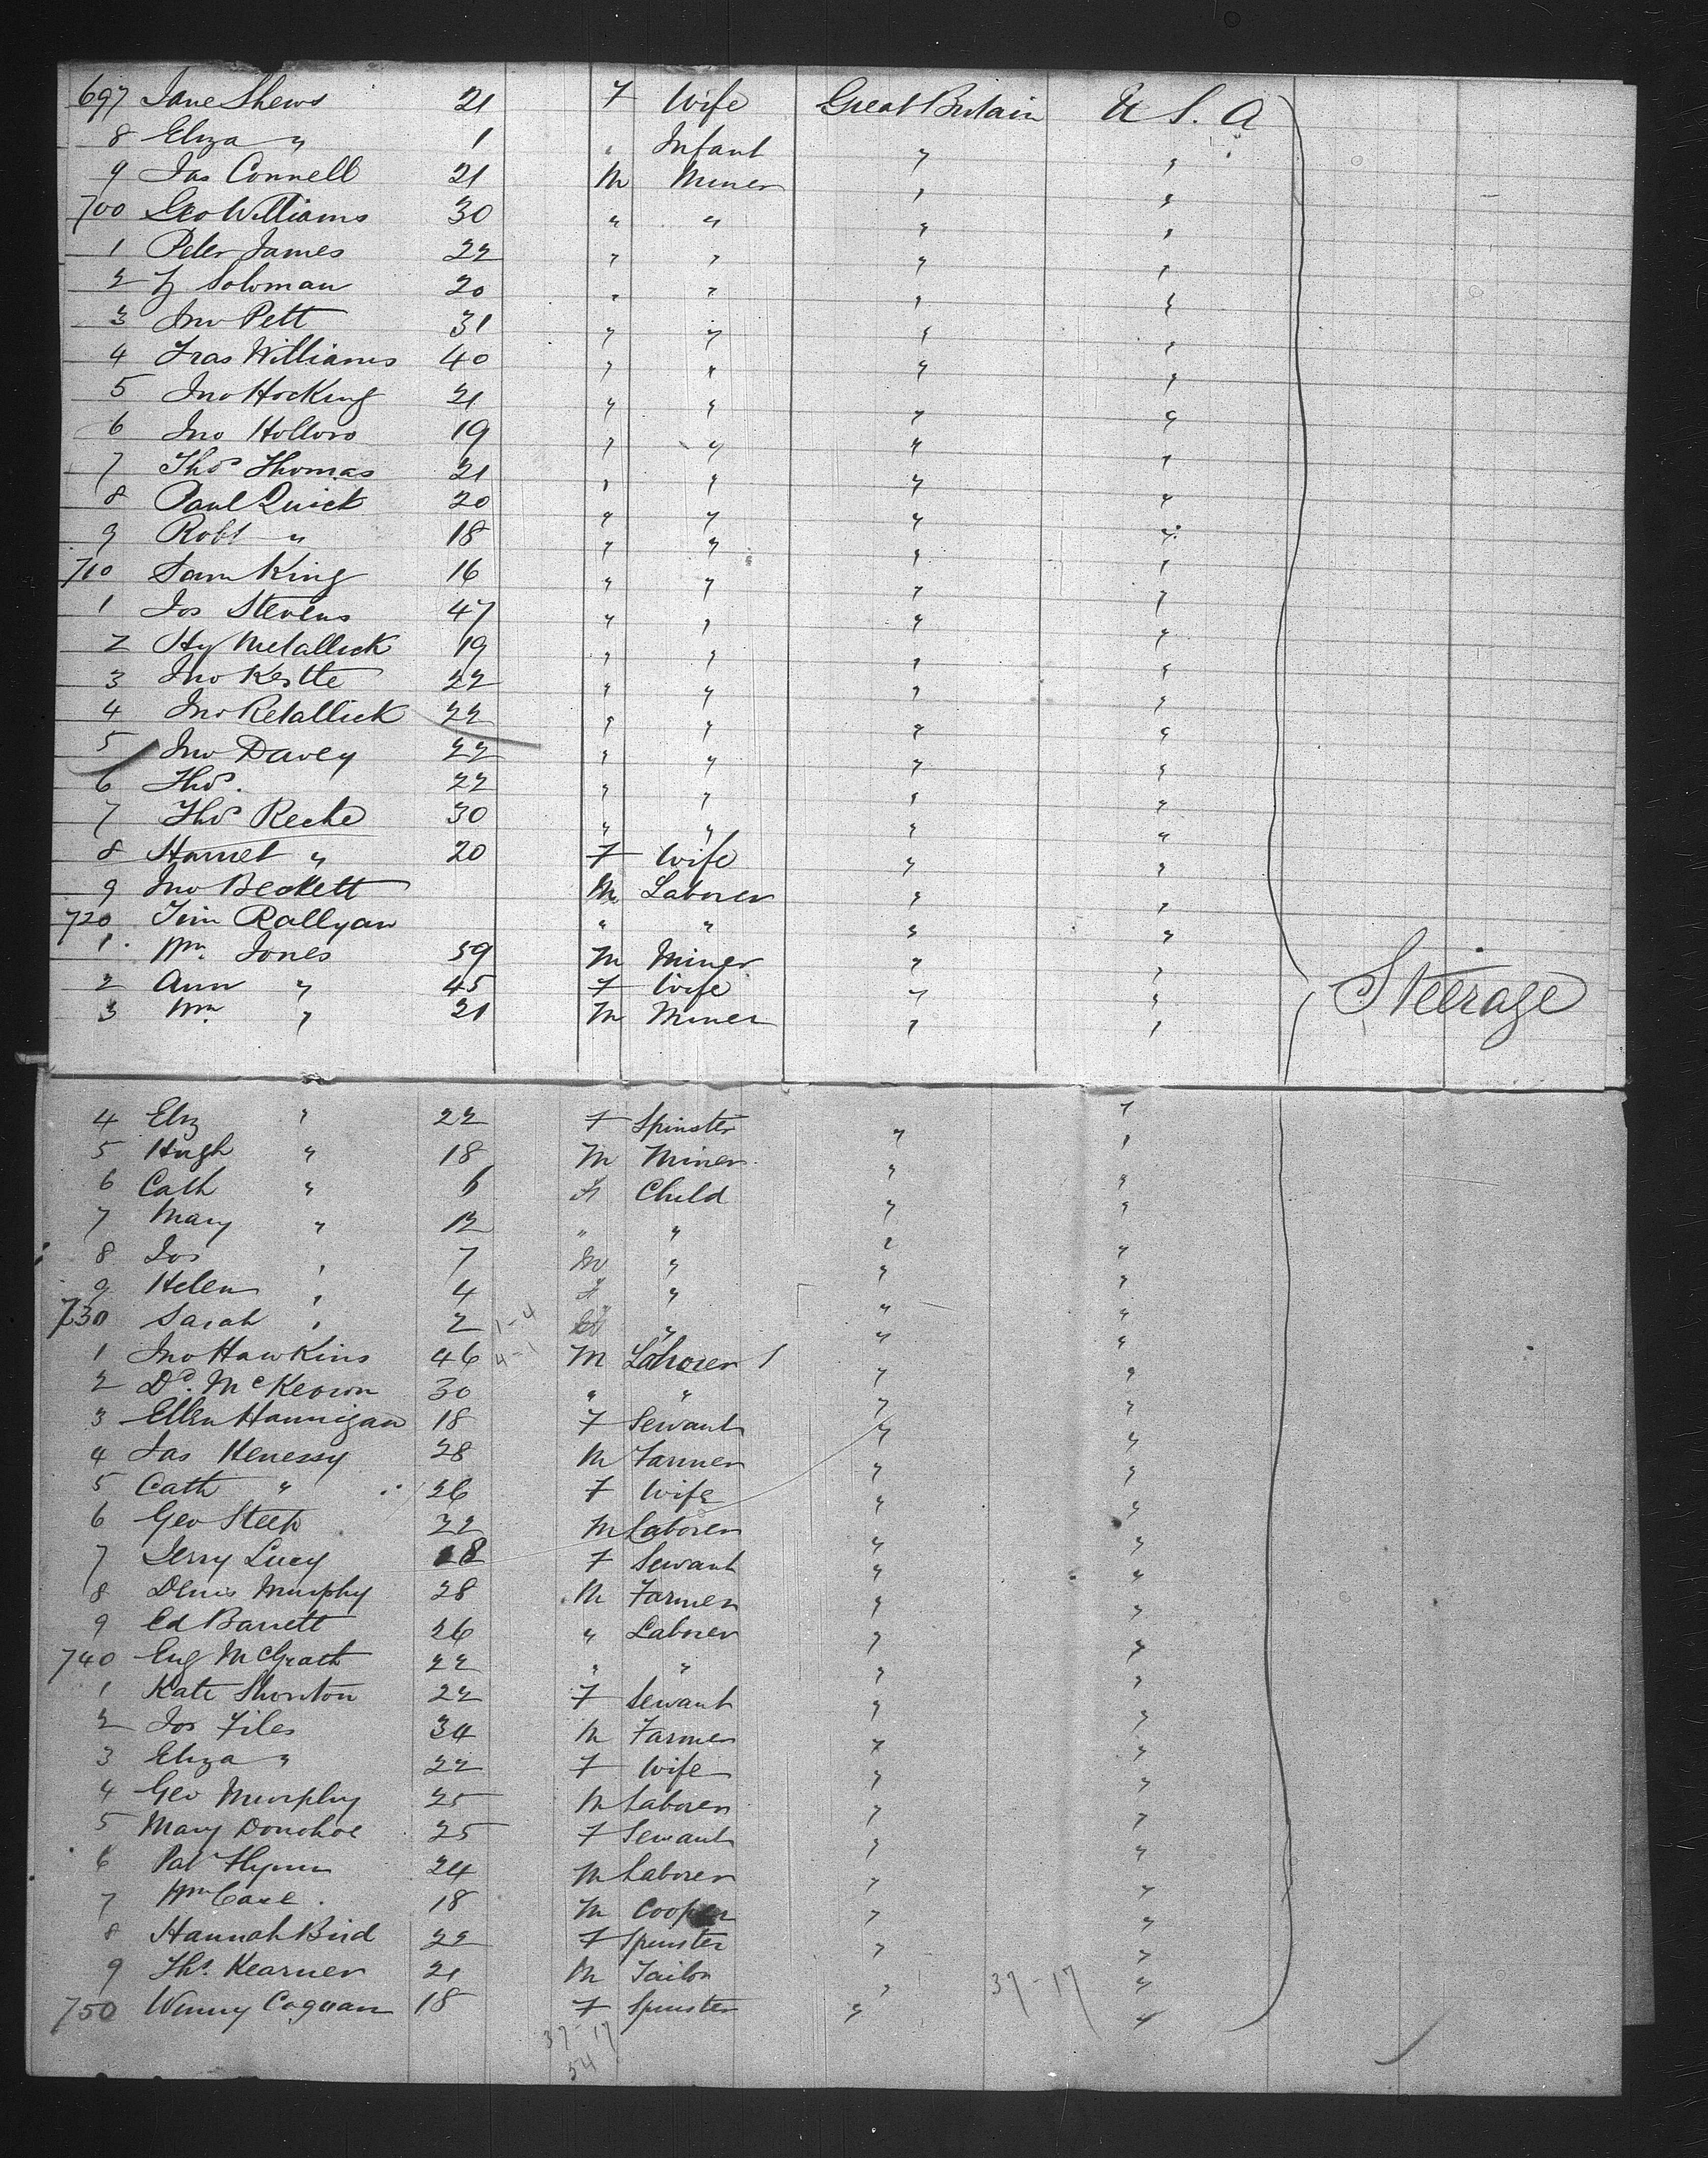 697 Jane Shews 21 F Wife Great Britain U S. A
8 Eliza " 1 " Infant " "
9 Jas Connell 21 M Miner " "
700 Geo Williams 30 " " " "
1 Peter James 22 " " " "
2 Hy Soloman 20 " " " "
3 Jno Pett 31 " " " "
4 Fras Williams 40 " " " "
5 Jno Hocking 21 " " " "
6 Jno Hollow 19 " " " "
7 Thos Thomas 21 " " " "
8 Paul Quick 20 " " " "
9 Robt " 18 " " " "
710 Sam King 16 " " " "
1 Jos Stevens 47 " " " "
2 Hy Metallick 19 " " " "
3 Jno Kestte 22 " " " "
4 Jno Retallick 22 " " " "
5 Jno Davey 22 " " " "
6 Thos. 22 " " " "
7 Thos Recke 30 " " " "
8 Harriet " 20 F Wife " "
9 Jno Beckett M Laborer " "
720 Tim Rallyan " " " "
1 Wm. Jones 59 M Miner " "
2 Ann " 45 F Wife " " Steerage
3 Wm " 21 M Miner " "
4 Eliz " 22 F Spinster " "
5 Hugh " 18 M Miner " "
6 Cath " 6 F Child " "
7 Mary " 12 " " " "
8 Jos " 7 M " " "
9 Helen " 4 F " " "
730 Sarah " 2 1-4 " " "
1 Jno Hawkins 46 4-1 M Laborer 1 " "
2 Dd. McKeown 30 " " " "
3 Ellen Hannigan 18 F Servant " "
4 Jas Henessy 28 M Farmer " "
5 Cath " 26 F Wife " "
6 Geo Steep 22 M Laborer " "
7 Jerry Lucy 18 F Servant " "
8 Denis Murphy 28 M Farmer " "
9 Ed Barrett 26 " Laborer " "
740 Eug McGrath 22 " " " "
1 Kate Shorton 22 F Servant " "
2 Jos Files 34 M Farmer " "
3 Eliza " 22 F Wife " "
4 Geo Murphy 25 M Laborer " "
5 Mary Donohoe 25 F Servant " "
6 Pat Flynn 24 M Laborer " "
7 Wm Case. 18 M Cooper " "
8 Hannah Bird 22 F Spinster " "
9 Ths. Kearner 21 M Tailor " "
750 Winny Cognan 18 F Spinster " 37-17 "
37-17
54